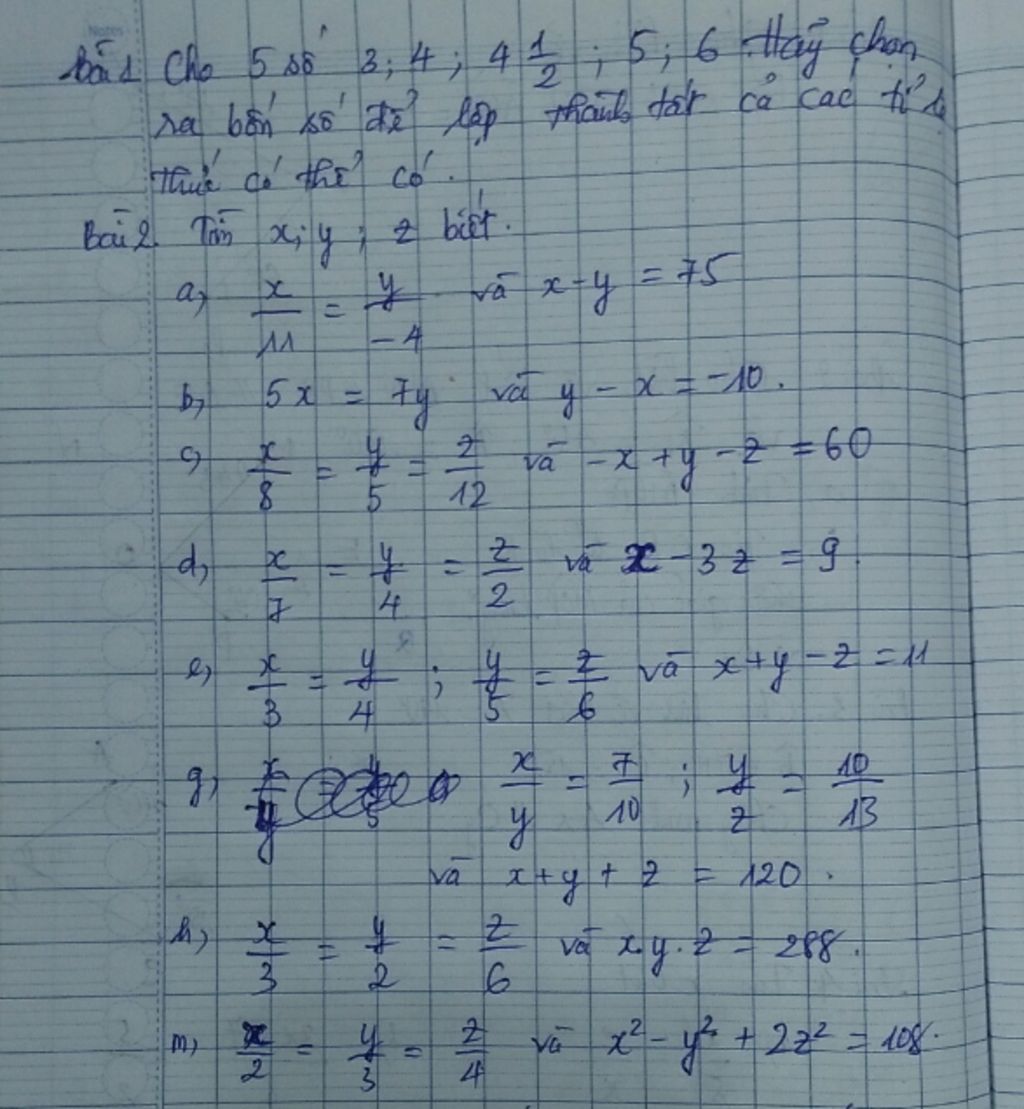 Bài 1 Cho 5 số 3; 4; 4 1/2; 5; 6 Hãy chọn
ra bốn số để lập thành tất cả các tỉ lệ
thức có thể có.
Bài 2. Tìm x; y; z biết.
a, x/11 = y/-4 và x - y = 75
b, 5x = 7y và y - x = -10.
c, x/8 = y/5 = z/12 và -x + y - z = 60
d, x/7 = y/4 = z/2 và x - 3z = 9.
e, x/3 = y/4 ; y/5 = z/6 và x + y - z = 11
g, x/y = 7/10 ; y/z = 10/13
và x + y + z = 120.
h, x/3 = y/2 = z/6 và x.y.z = 288.
m, x/2 = y/3 = z/4 và x² - y² + 2z² = 108.